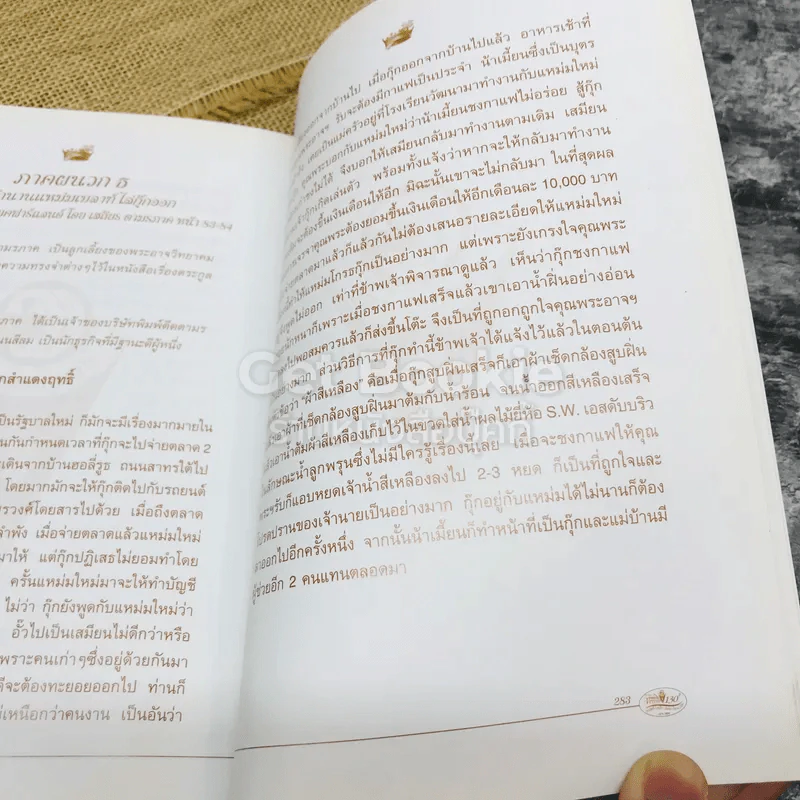 ภาคผนวก ธ
หน้า 83-84
มรภาค เป็นลูกเลี้ยงของพระอาจวิทยาคม
ความทรงจำต่างๆไว้ในหนังสือเรื่องตระกูล
รภาค ได้เป็นเจ้าของบริษัทพิมพ์ดีดตามร
นสีลม เป็นนักธุรกิจที่มีฐานะดีผู้หนึ่ง
กสำแดงฤทธิ์
ป็นรัฐบาลใหม่ ก็มักจะมีเรื่องมากมายใน
นกันกำหนดเวลาที่กุ๊กจะไปจ่ายตลาด 2
เดินจากบ้านฮอลี่รูธ ถนนสาทรได้ไป
โดยมากมักจะให้กุ๊กติดไปกับรถยนต์
รวงศ์โดยสารไปด้วย เมื่อถึงตลาด
ลำพัง เมื่อจ่ายตลาดแล้วแหม่มใหม่
มาให้ แต่กุ๊กปฏิเสธไม่ยอมทำโดย
ครั้นแหม่มใหม่มาจะให้ทำบัญชี
ไม่ว่า กุ๊กยังพูดกับแหม่มใหม่ว่า
อั๊วไปเป็นเสมียนไม่ดีกว่าหรือ
เพราะคนเก่าๆซึ่งอยู่ด้วยกันมา
ลีจะต้องทะยอยออกไป ท่านก็
ร่เหนือกว่าคนงาน เป็นอันว่า
ออกจากบ้านไป เมื่อกุ๊กออกจากบ้านไปแล้ว อาหารเช้าที่
พระอาจฯ รับจะต้องมีกาแฟเป็นประจำ น้าเมี้ยนซึ่งเป็นบุตร
เคยเป็นแม่ครัวอยู่ที่โรงเรียนวัฒนามาทำงานกับแหม่มใหม่
คุณพระบอกกับแหม่มใหม่ว่าน้าเมี้ยนชงกาแฟไม่อร่อย สู้กุ๊ก
ชงไม่ได้ จึงบอกให้เสมียนกลับมาทำงานตามเดิม เสมียน
กุ๊กเกิดเล่นตัว พร้อมทั้งแจ้งว่าหากจะให้กลับมาทำงาน
จะต้องขึ้นเงินเดือนให้อีก มิฉะนั้นเขาจะไม่กลับมา ในที่สุดผล
เจรจาคุณพระต้องยอมขึ้นเงินเดือนให้อีกเดือนละ 10,000 บาท
ตลาดมาแล้วก็แล้วกันไม่ต้องเสนอรายละเอียดให้แหม่มใหม่
ทำให้แหม่มโกรธกุ๊กเป็นอย่างมาก แต่เพราะยังเกรงใจคุณพระ
พูดไม่ออก เท่าที่ข้าพเจ้าพิจารณาดูแล้ว เห็นว่ากุ๊กชงกาแฟ
หนักหนาก็เพราะเมื่อชงกาแฟเสร็จแล้วเขาเอาน้ำฝิ่นอย่างอ่อน
ไปพอสมควรแล้วก็ส่งขึ้นโต๊ะ จึงเป็นที่ถูกอกถูกใจคุณพระอาจฯ
อย่างมาก ส่วนวิธีการที่กุ๊กทำนี้ข้าพเจ้าได้แจ้งไว้แล้วในตอนต้น
ชื่อว่า “ผ้าสีเหลือง” คือเมื่อกุ๊กสูบฝิ่นเสร็จก็เอาผ้าเช็ดกล้องสูบฝิ่น
ผ้าที่เช็ดกล้องสูบฝิ่นมาต้มกับน้ำร้อน จนน้ำออกสีเหลืองเสร็จ
แล้วเอาน้ำต้มผ้าสีเหลืองเก็บไว้ในขวดใส่น้ำผลไม้ยี่ห้อ S.W. เอสดับบริว
ในลักษณะน้ำลูกพรุนซึ่งไม่มีใครรู้เรื่องนี้เลย เมื่อจะชงกาแฟให้คุณ
พระฯรับก็แอบหยดเจ้าน้ำสีเหลืองลงไป 2-3 หยด ก็เป็นที่ถูกใจและ
โปรดปรานของเจ้านายเป็นอย่างมาก กุ๊กอยู่กับแหม่มได้ไม่นานก็ต้อง
ลาออกไปอีกครั้งหนึ่ง จากนั้นน้าเมี้ยนก็ทำหน้าที่เป็นกุ๊กและแม่บ้านมี
ผู้ช่วยอีก 2 คนแทนตลอดมา
283
130
Get Bookie